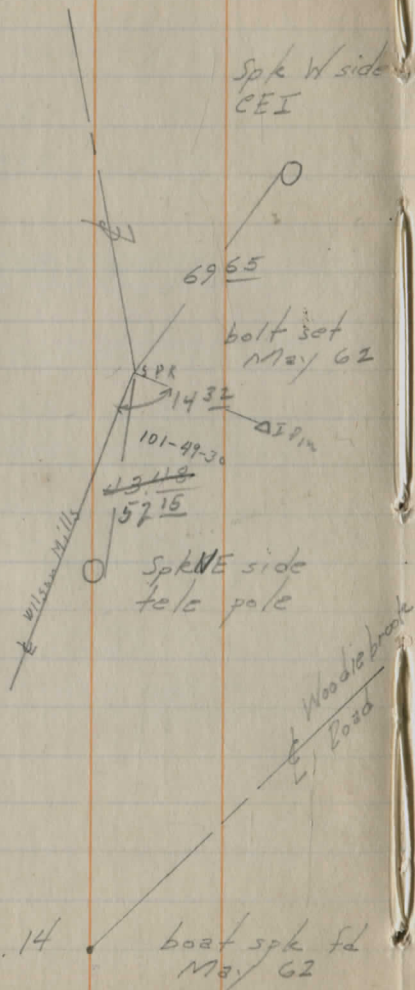 Spk W side
CEI
69 65
bolt set
May 62
SPK
14 32
101-49-30
13.18
52 15
℄ Wilson Mills
Spk NE side
tele pole
℄ Woodiebrook
Road
.14
boat spk fd
May 62